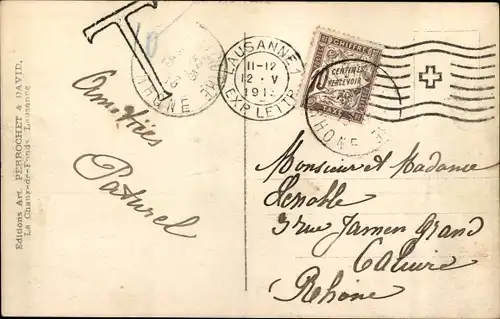 T
10
LAUSANNE 1
11-12
12 · V
1913
EXP. LETTR.
RHONE
CHIFFRE
10 CENTIMES
A
PERCEVOIR
RHONE
Editions Art. PERROCHET & DAVID.
La Chaux-de-Fonds - Lausanne
Amitiés
Paturel
Monsieur et Madame
Lenoble
3 rue Jamen Grand
Caluire
Rhône